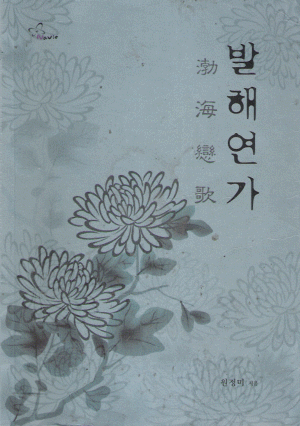 발해연가
渤海戀歌
원정미 지음